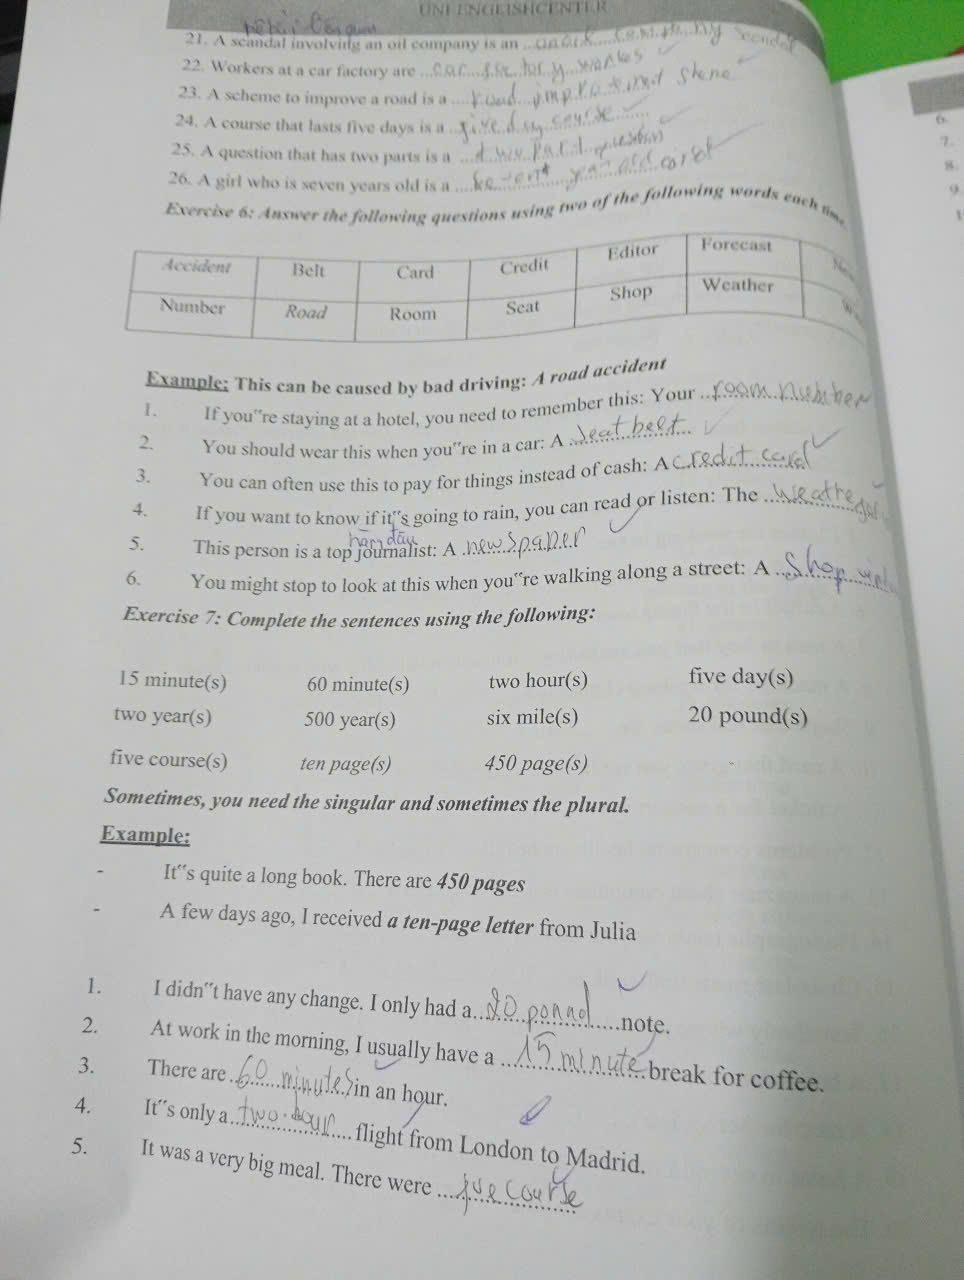 UNI ENGLISHCENTER
21. A scandal involving an oil company is an
22. Workers at a car factory are ...car factory workes
23. A scheme to improve a road is a ....road
24. A course that lasts five days is a ..five day course
25. A question that has two parts is a ...two part question
26. A girl who is seven years old is a
Exercise 6: Answer the following questions using two of the following words each time
Accident Belt Card Credit Editor Forecast
Number Road Room Seat Shop Weather
Example: This can be caused by bad driving: A road accident
1. If you"re staying at a hotel, you need to remember this: Your ..room number
2. You should wear this when you"re in a car: A ..Seat belt...
3. You can often use this to pay for things instead of cash: A credit card
4. If you want to know if it"s going to rain, you can read or listen: The ..weather
hàng đầu
5. This person is a top journalist: A .newspaper
6. You might stop to look at this when you"re walking along a street: A ...Shop
Exercise 7: Complete the sentences using the following:
15 minute(s) 60 minute(s) two hour(s) five day(s)
two year(s) 500 year(s) six mile(s) 20 pound(s)
five course(s) ten page(s) 450 page(s)
Sometimes, you need the singular and sometimes the plural.
Example:
- It"s quite a long book. There are 450 pages
- A few days ago, I received a ten-page letter from Julia
1. I didn"t have any change. I only had a...20 ponnd.....note.
2. At work in the morning, I usually have a ...15 minute...break for coffee.
3. There are ..60 minutes in an hour.
4. It"s only a..two-hour.... flight from London to Madrid.
5. It was a very big meal. There were ....five course